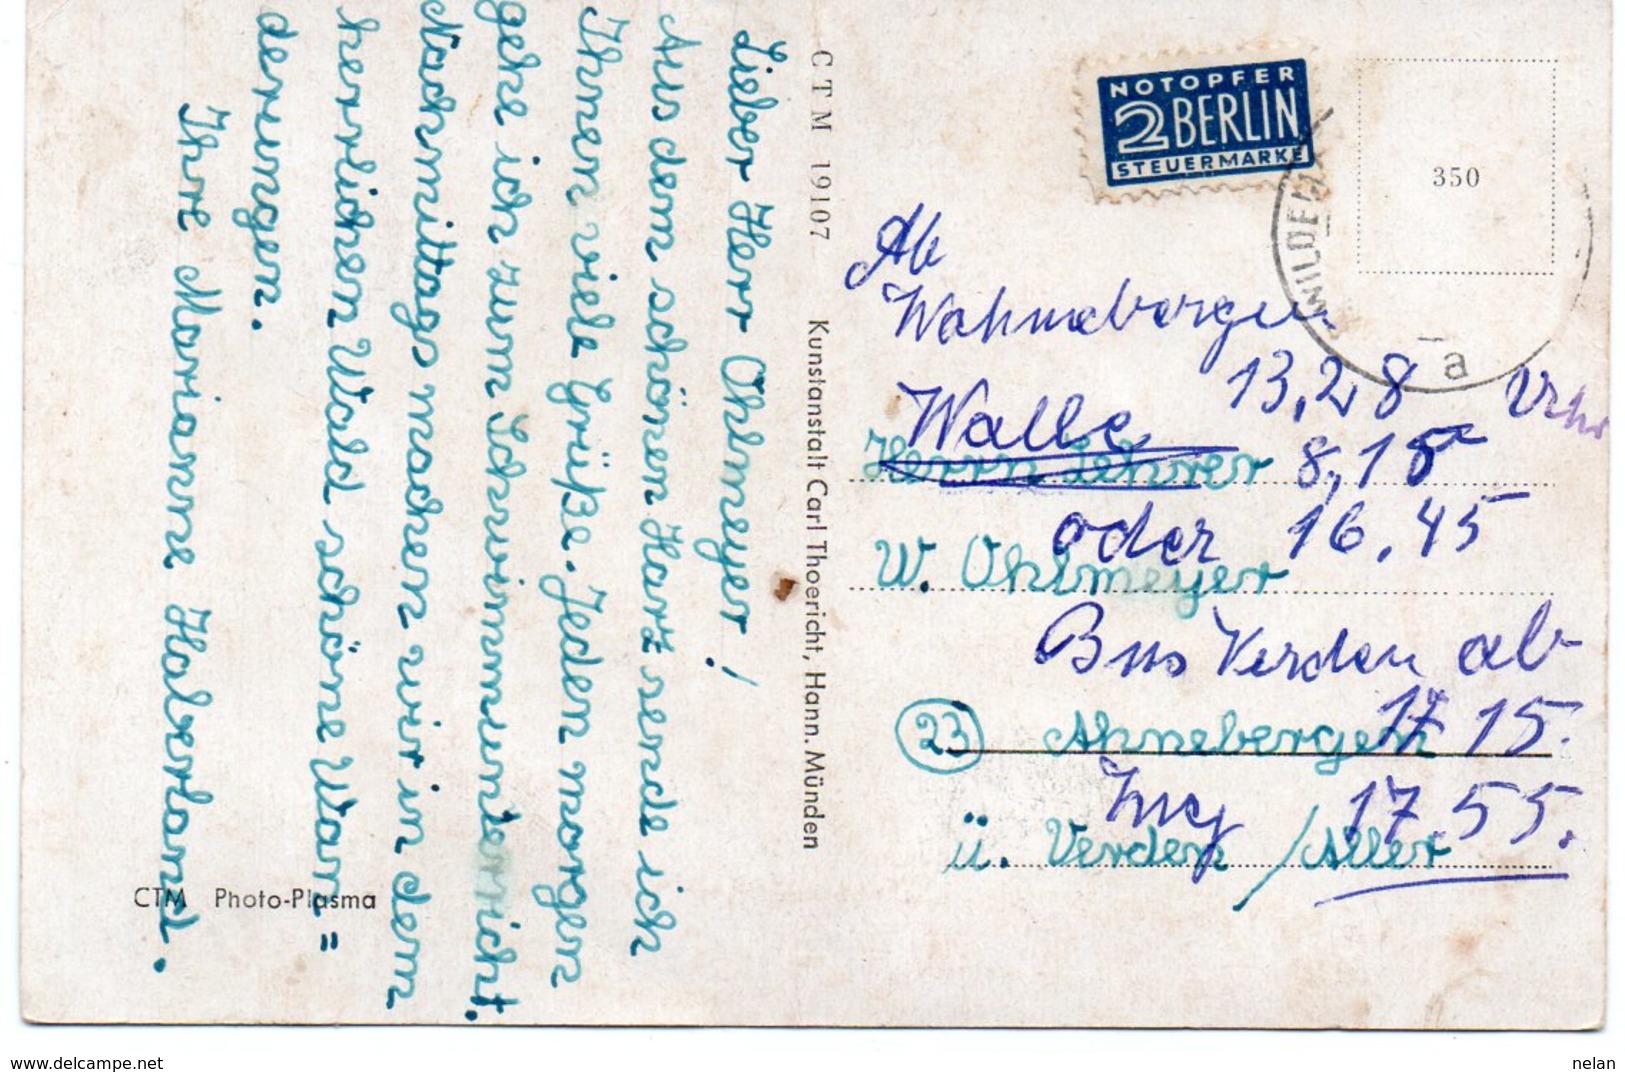 Lieber Herr Ohlmeyer!
Aus dem schönen Harz sende ich
Ihnen viele Grüße. Jeden morgen
gehe ich zum Schwimmunterricht.
Nachmittags machen wir in dem
herrlichen Wald schöne Wan=
derungen.
Ihre Marianne Haberland.
CTM Photo-Plasma
CTM 19107 Kunstanstalt Carl Thoericht, Hann. Münden
NOTOPFER
2 BERLIN
STEUERMARKE
350
WILDEM
a
Ab
Wahnebergen
13,28 Uhr
Walle 8,15
Herrn Lehrer
oder 16.45
W. Ohlmeyer
Bus Verden ab
17 15.
(23) Ahnebergen
17.55.
ü. Verden /Aller
delcampe.net
nelan